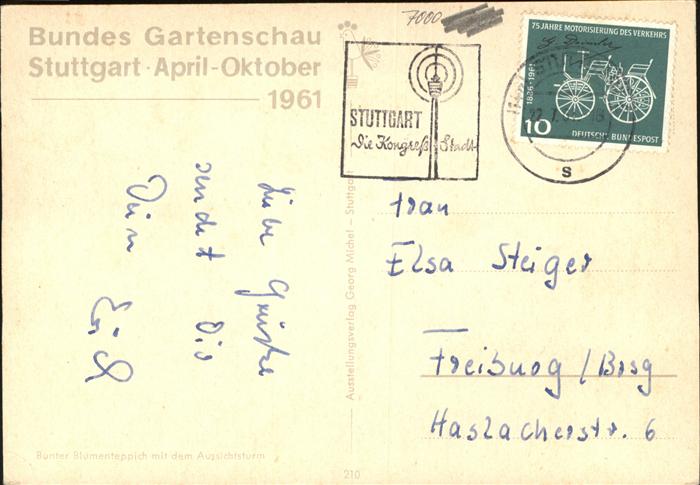 Bundes Gartenschau
Stuttgart · April-Oktober
1961
7000
STUTTGART
Die Kongreß-Stadt
75 JAHRE MOTORISIERUNG DES VERKEHRS
G. Daimler
1886-1961
10
DEUTSCHE BUNDESPOST
S
Liebe Grüße
sendet Dir
Dein
Erich
Ausstellungsverlag Georg Michel – Stuttgart
Frau
Elsa Steiger
Freiburg / Brsg
Haslacherstr. 6
Bunter Blumenteppich mit dem Aussichtsturm
210